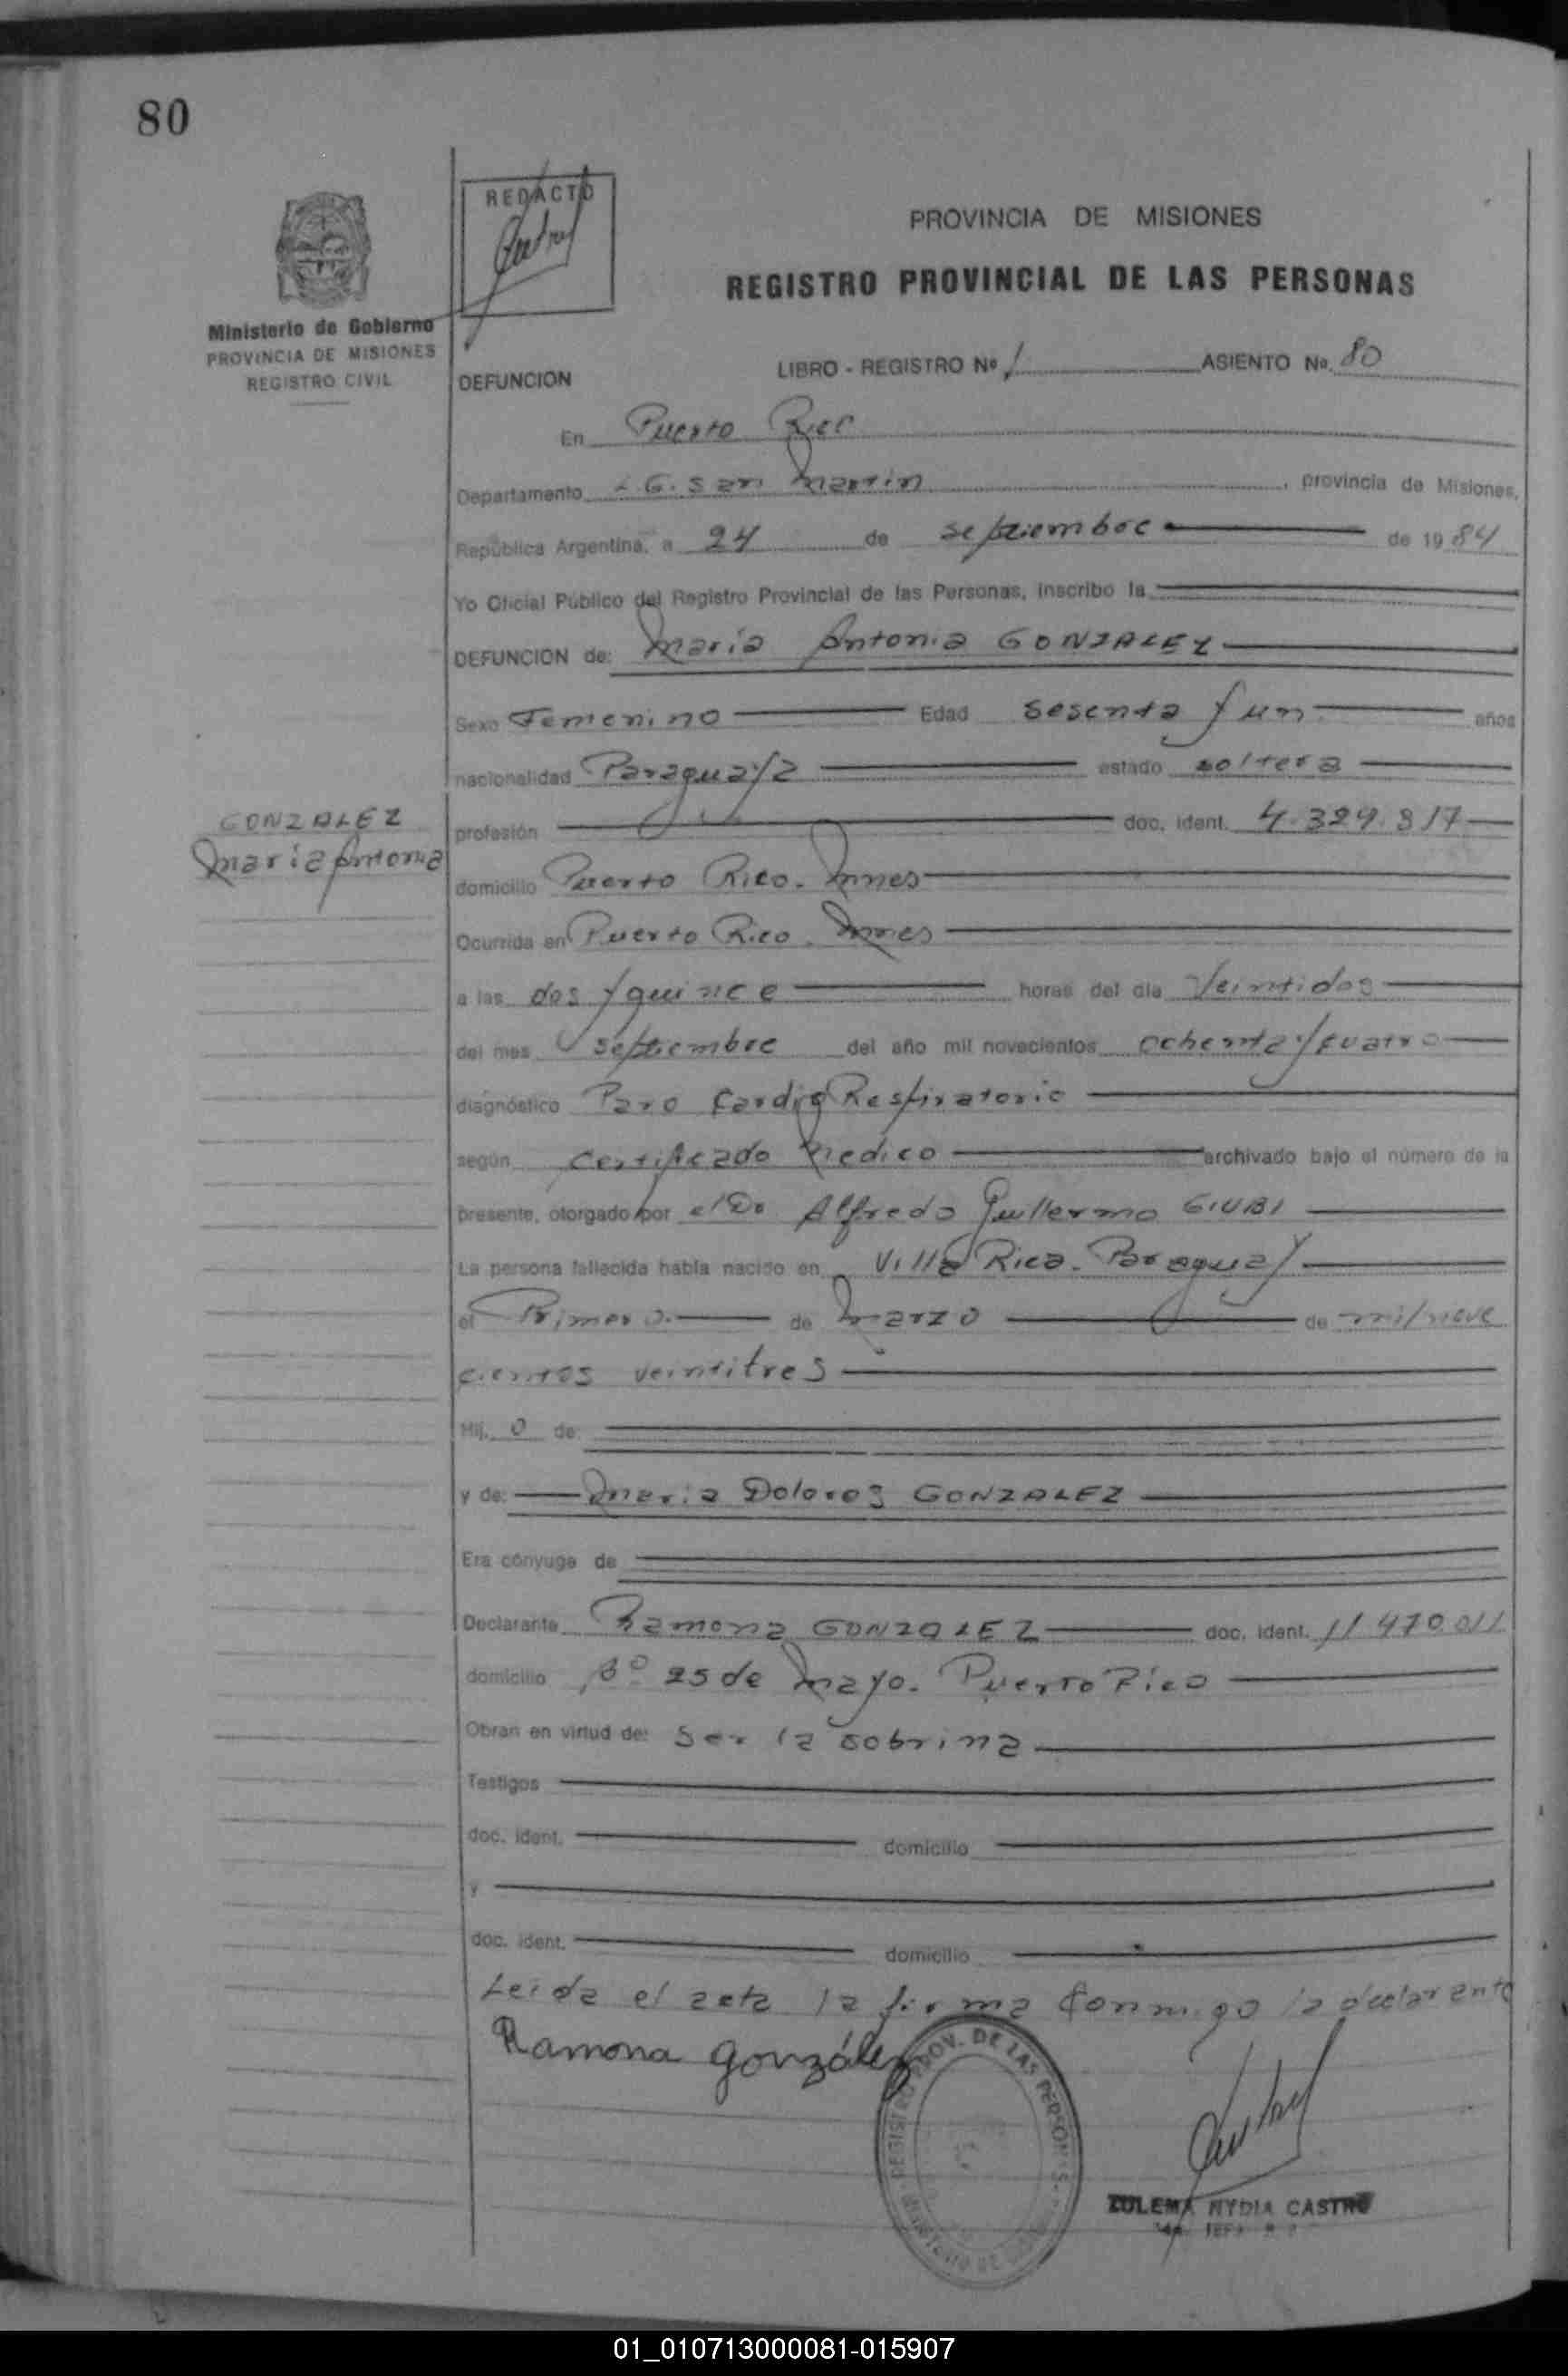 80
REDACTO
PROVINCIA DE MISIONES
REGISTRO PROVINCIAL DE LAS PERSONAS
Ministerio de Gobierno
PROVINCIA DE MISIONES
REGISTRO CIVIL
DEFUNCION
LIBRO - REGISTRO Nº 1 ASIENTO Nº 80
En Puerto Rico
Departamento L.G. San Martin, provincia de Misiones,
República Argentina, a 24 de septiembre de 1984
Yo Oficial Público del Registro Provincial de las Personas, inscribo la
DEFUNCION de: Maria Antonia GONZALEZ
Sexo Femenino Edad Sesenta y un años
nacionalidad Paraguaya estado soltera
GONZALEZ
Maria Antonia
profesión doc. ident. 4.329.817
domicilio Puerto Rico. Mnes
Ocurrida en Puerto Rico. Mnes
a las dos y quince horas del día Veintidos
del mes septiembre del año mil novecientos ochenta y cuatro
diagnóstico Paro Cardio Respiratorio
según certificado Medico archivado bajo el número de la
presente, otorgado por el Dr Alfredo Guillermo GIUBI
La persona fallecida había nacido en Villa Rica. Paraguay
el Primero de Marzo de mil nove
cientos veintitres
Hij. o de:
y de: Maria Dolores GONZALEZ
Era cónyuge de
Declarante Ramona GONZALEZ doc. ident. 11.470.011
domicilio Bº 25 de Mayo. Puerto Rico
Obran en virtud de: Ser la sobrina
Testigos
doc. ident. domicilio
y
doc. ident. domicilio
Leida el acta la firma conmigo la declarante
Ramona González
REGISTRO PROV. DE LAS PERSONAS
ZULEMA NYDIA CASTRO
01_010713000081-015907